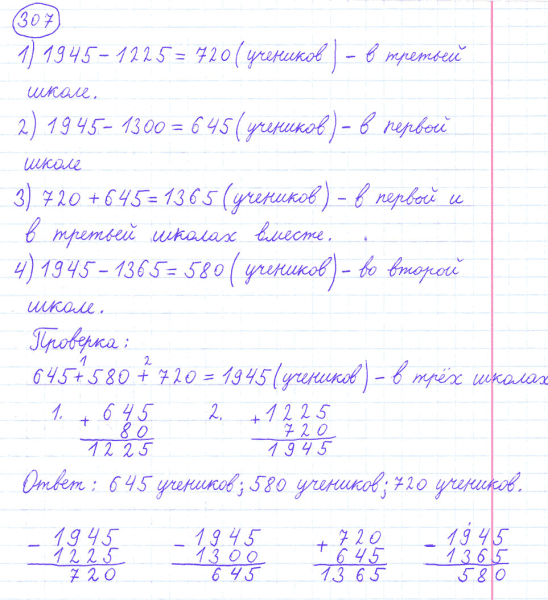 307
1) 1945 - 1225 = 720 (учеников) - в третьей
школе.
2) 1945 - 1300 = 645 (учеников) - в первой
школе
3) 720 + 645 = 1365 (учеников) - в первой и
в третьей школах вместе.
4) 1945 - 1365 = 580 (учеников) - во второй
школе.
Проверка:
1 2
645 + 580 + 720 = 1945 (учеников) - в трёх школах
1. + 645 2. + 1225
80 720
1225 1945
Ответ: 645 учеников; 580 учеников; 720 учеников.
- 1945 - 1945 + 720 - 1945
1225 1300 645 1365
720 645 1365 580